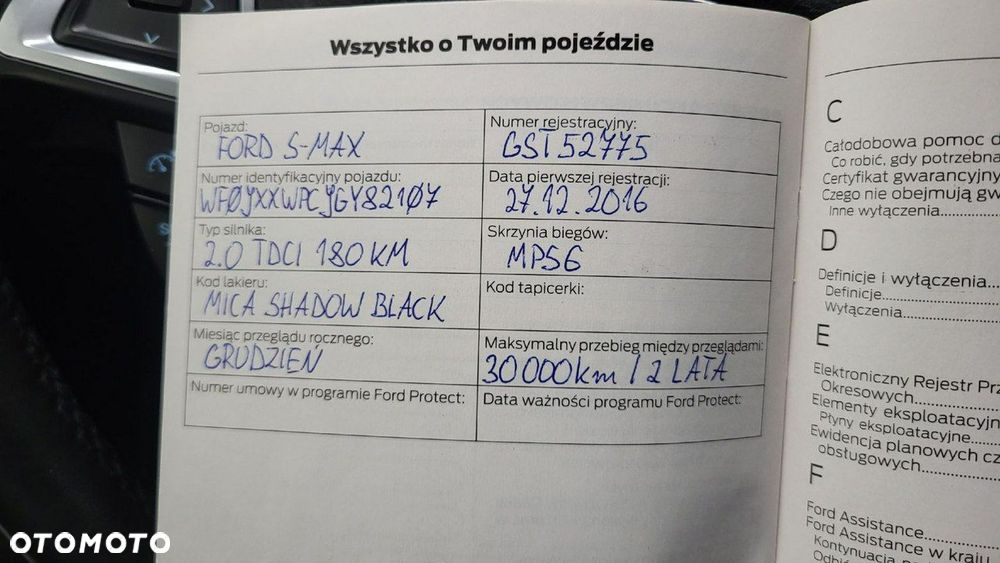 Wszystko o Twoim pojeździe
Pojazd:
FORD S-MAX
Numer rejestracyjny:
GST 52775
Numer identyfikacyjny pojazdu:
WFØJXXWPCJGY821Ø7
Data pierwszej rejestracji:
27.12.2016
Typ silnika:
2.0 TDCI 180 KM
Skrzynia biegów:
MPS6
Kod lakieru:
MICA SHADOW BLACK
Kod tapicerki:
Miesiąc przeglądu rocznego:
GRUDZIEŃ
Maksymalny przebieg między przeglądami:
30 000 km / 2 LATA
Numer umowy w programie Ford Protect:
Data ważności programu Ford Protect:
C
Całodobowa pomoc d
Co robić, gdy potrzebna
Certyfikat gwarancyjny
Czego nie obejmują gw
Inne wyłączenia
D
Definicje i wyłączenia
Definicje
Wyłączenia
E
Elektroniczny Rejestr Prz
Okresowych
Elementy eksploatacyjn
Płyny eksploatacyjne
Ewidencja planowych cz
obsługowych
F
Ford Assistance
Ford Assistance w kraju
Kontynuacja
OTOMOTO